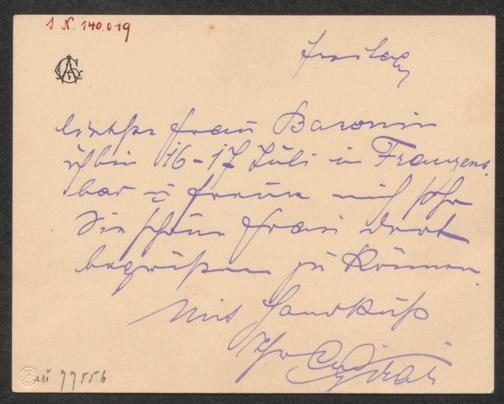 I. N. 140.019
Freitag
liebste Frau Baronin
ich bin 16-17 Juli in Franzens
bad u freue mich sehr
Sie schöne Frau dort
begrüßen zu können.
Mit Handkuß
Ihr
77556